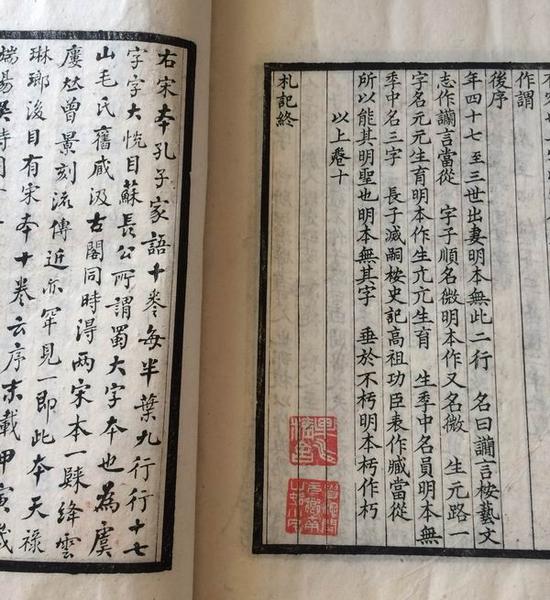 作謂
後序
年四十七 至三世出妻明本無此二行 名曰讕言桉藝文
志作讕言當從 字子順名微明本作又名微 生元路一
字名元元生育明本作生亢亢生育 生季中名員明本無
季中名三字 長子滅嗣桉史記高祖功臣表作臧當從
所以能其明聖也明本無其字 垂於不朽明本朽作朽
以上卷十
札記終
右宋本孔子家語十卷每半葉九行行十七
字字大悅目蘇長公所謂蜀大字本也為虞
山毛氏舊咸汲古閣同時得兩宋本一 絳雲
曾景刻流傳近亦罕見一即此本天祿
琳瑯後目有宋本十卷云序末載甲寅歲
端陽吳時用